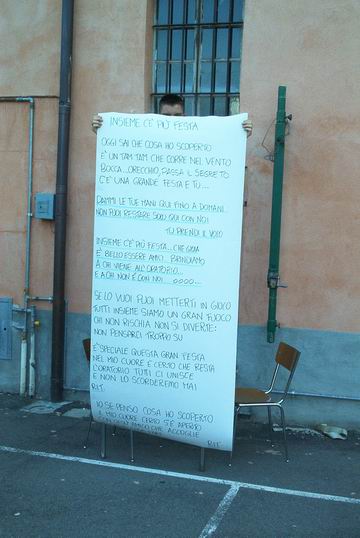 INSIEME C'È PIÙ FESTA
OGGI SAI CHE COSA HO SCOPERTO
È UN TAM TAM CHE CORRE NEL VENTO
BOCCA...ORECCHIO, PASSA IL SEGRETO
C'È UNA GRANDE FESTA E TU...
DAMMI LE TUE MANI QUI FINO A DOMANI
NON PUOI RESTARE SOLO QUI CON NOI
TU PRENDI IL VOLO
INSIEME C'È PIÙ FESTA... CHE GIOIA
È BELLO ESSERE AMICI... BRINDIAMO
A CHI VIENE ALL'ORATORIO...
E A CHI NON È CON NOI... OOOO...
SE LO VUOI PUOI METTERTI IN GIOCO
TUTTI INSIEME SIAMO UN GRAN FUOCO
CHI NON RISCHIA NON SI DIVERTE:
NON PENSARCI TROPPO SU
È SPECIALE QUESTA GRAN FESTA
NEL MIO CUORE È CERTO CHE RESTA
L'ORATORIO TUTTI CI UNISCE
E NON LO SCORDEREMO MAI
RIT.
IO SE PENSO COSA HO SCOPERTO
IL MIO CUORE CERTO S'È APERTO
AMICO CHE ACCOGLIE
RIT.